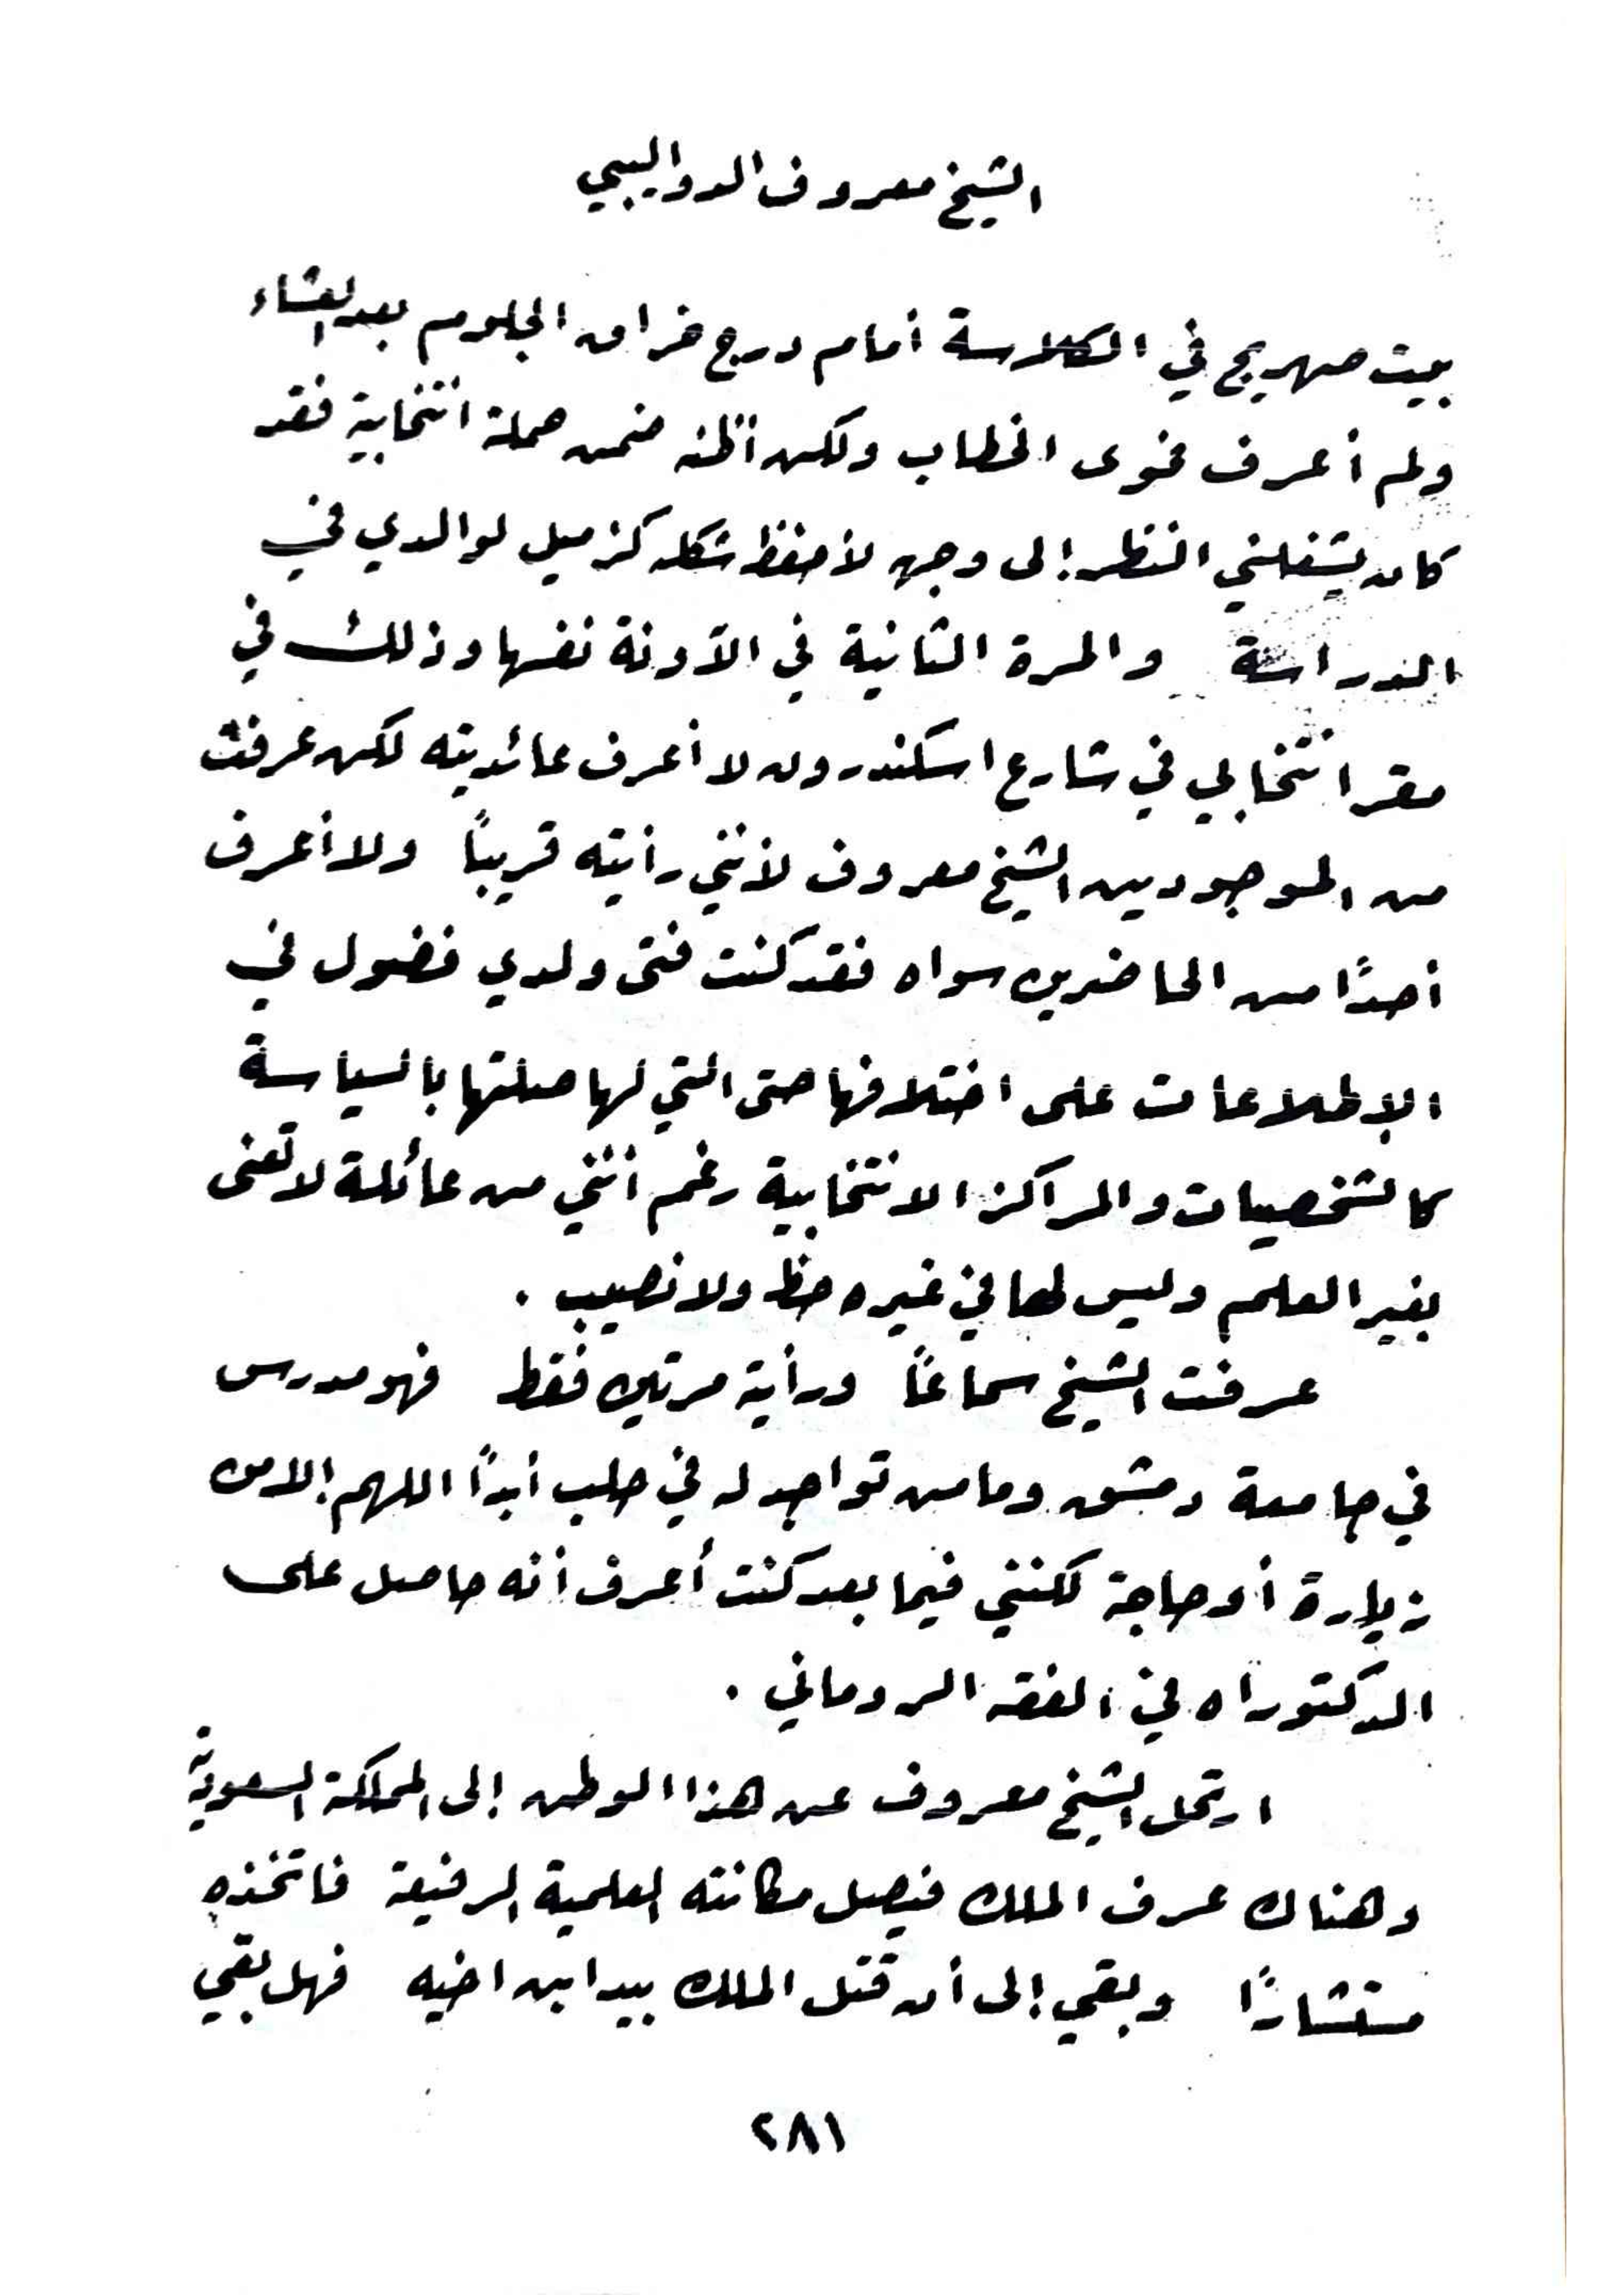 الشيخ معروف الدواليبي
بيت صهريج في الكلاسة أمام درج خراق الجلوم بعد العشاء
ولم أعرف فحوى الخطاب ولكن أظنه ضمن حملة انتخابية فقد
كان يشغلني النظر إلى وجهه لأحفظ شكله كزميل لوالدي في
الدراسة والمرة الثانية في الآونة نفسها وذلك في
مقر انتخابي في شارع اسكندرون لا أعرف عائديته لكن عرفت
من الموجودين الشيخ معروف لأنني رأيته قريباً ولا أعرف
أحداً من الحاضرين سواه فقد كنت فتى ولدي فضول في
الإطلاعات على اختلافها حتى التي لها صلتها بالسياسة
كالشخصيات والمراكز الانتخابية رغم أنني من عائلة لا تعنى
بغير العلم وليس لها في غيره حظ ولا نصيب .
عرفت الشيخ سماعاً ورأيته مرتين فقط فهو مدرس
في جامعة دمشق وما من تواجد له في حلب أبداً اللهم إلا من
زيارة أو حاجة لكنني فيما بعد كنت أعرف أنه حاصل على
الدكتوراه في الفقه الروماني .
ارتحل الشيخ معروف عن هذا الوطن إلى المملكة السعودية
وهناك عرف الملك فيصل مكانته العلمية الرفيعة فاتخذه
مستشاراً وبقي إلى أن قتل الملك بيد ابن اخيه فهل بقي
٢٨١